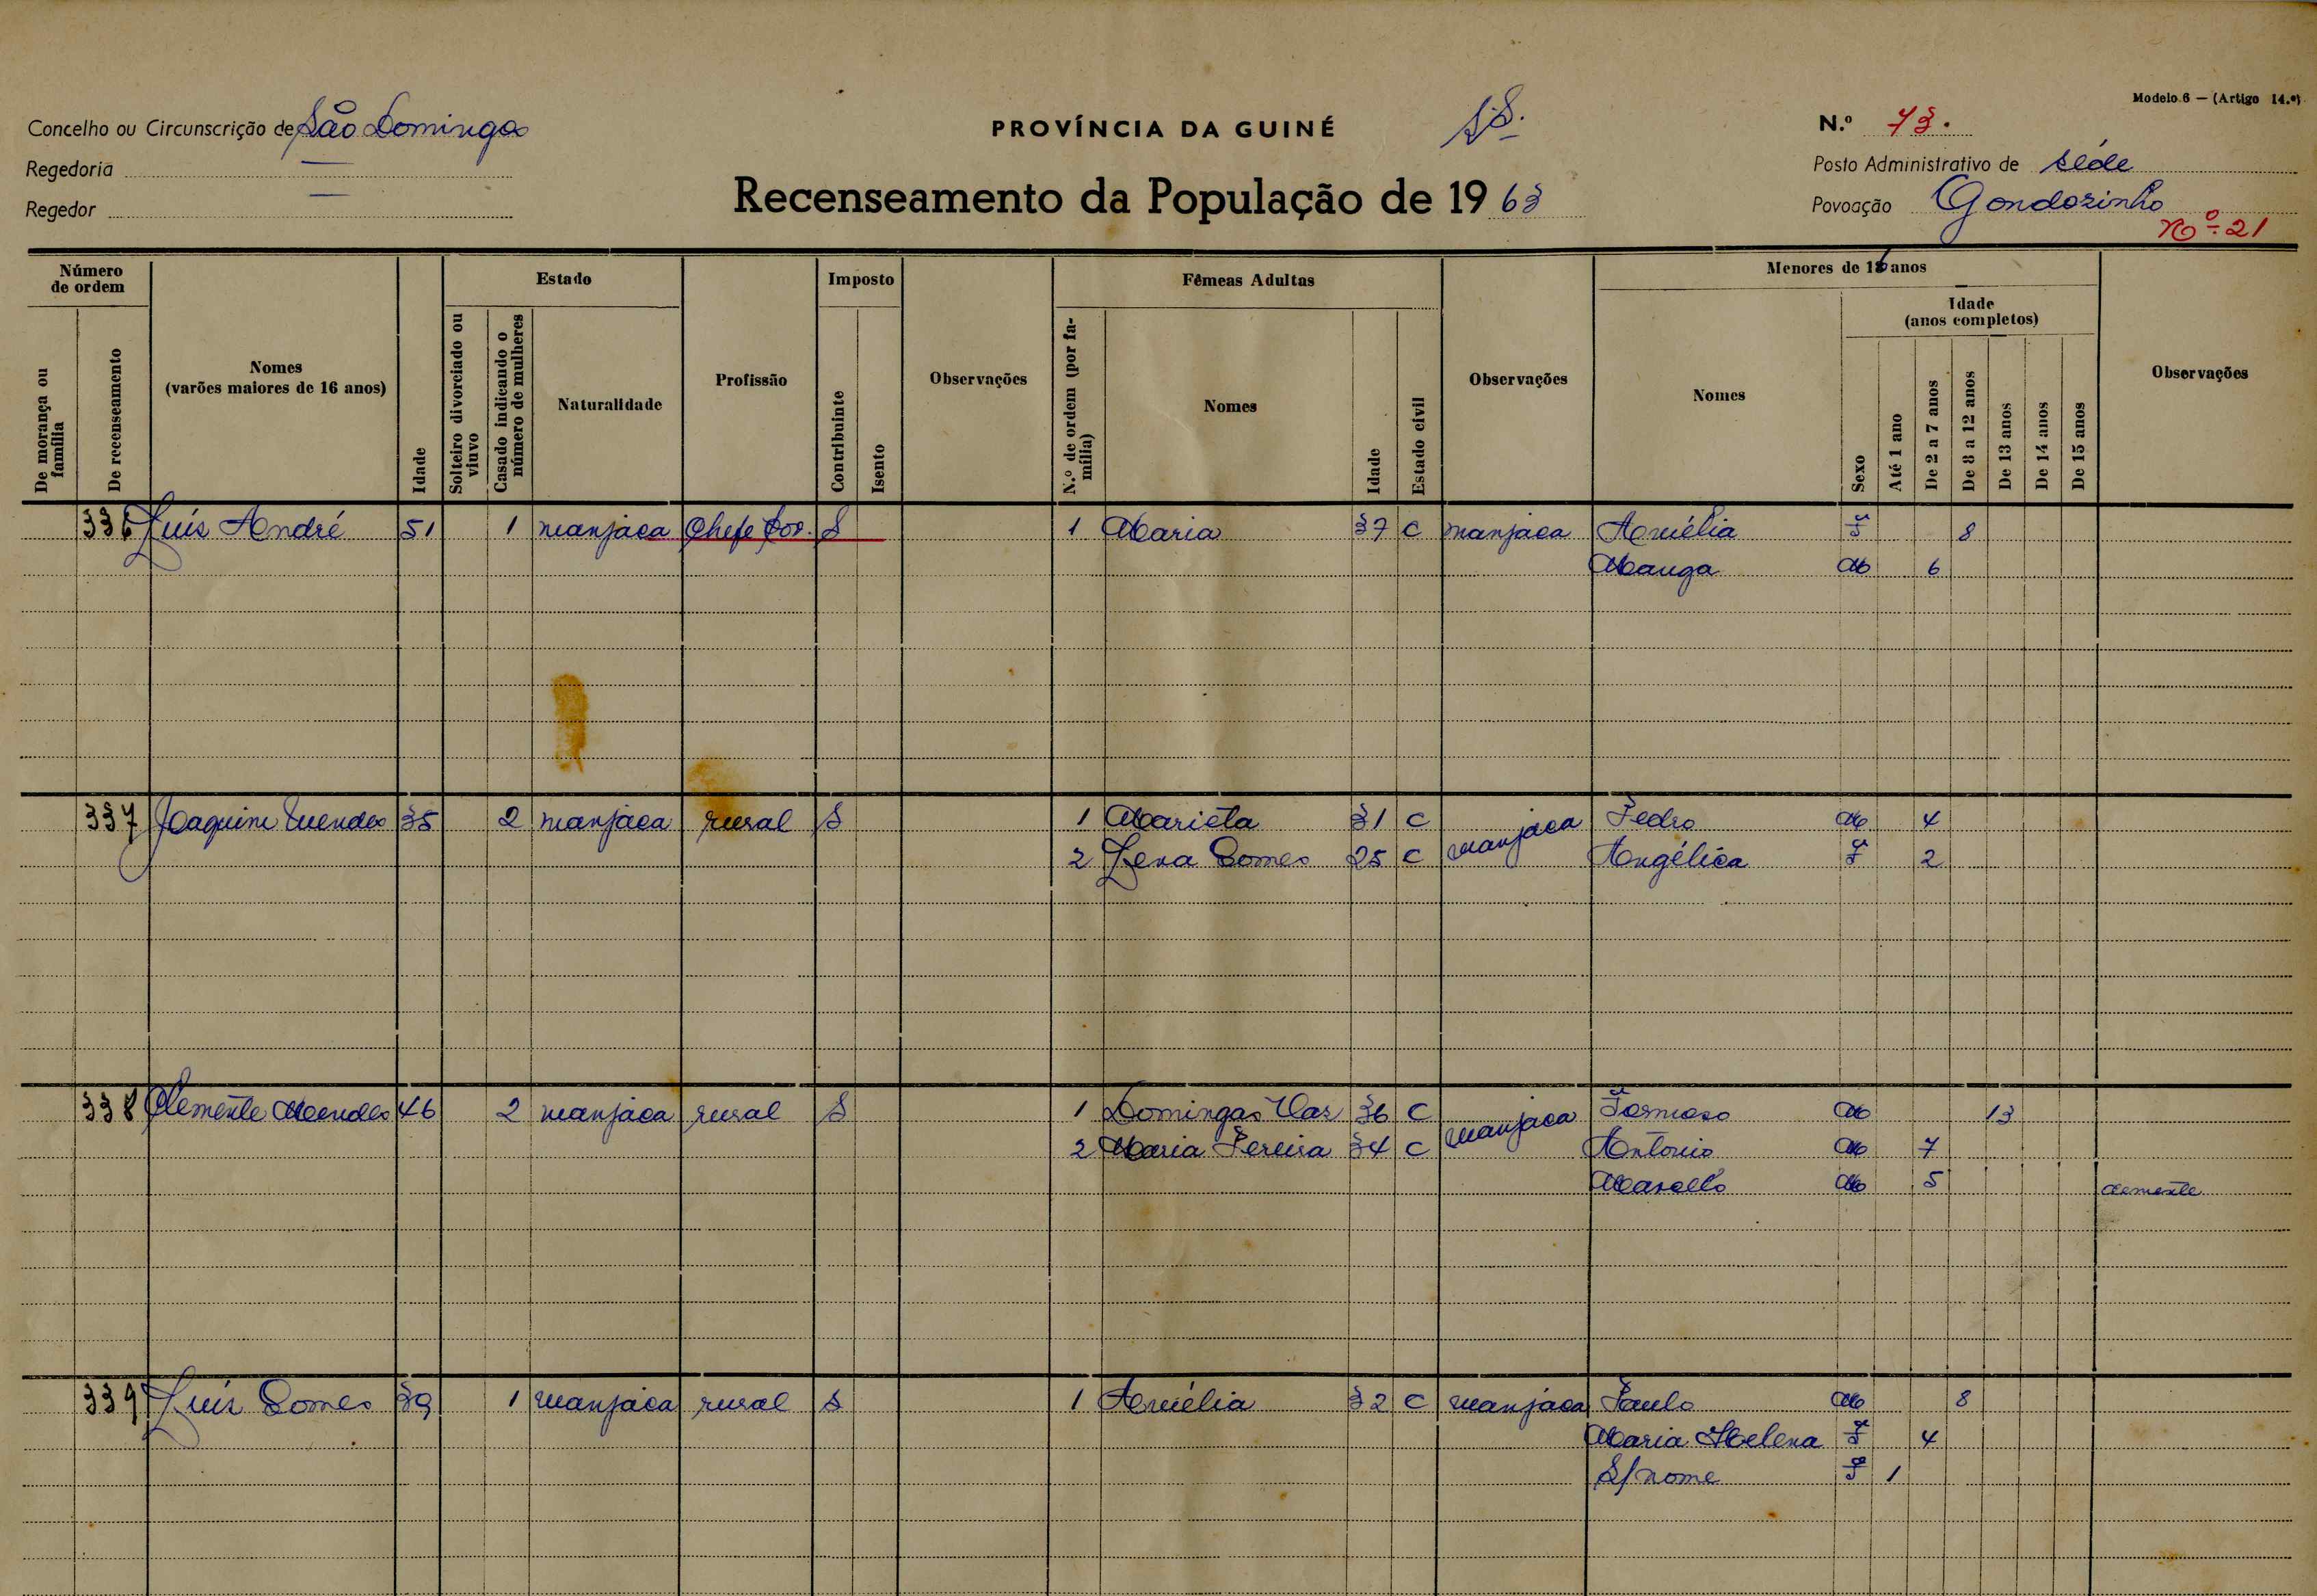 Modelo 6 — (Artigo 14.º)
Concelho ou Circunscrição de São Domingos
PROVÍNCIA DA GUINÉ
N.º 73.
Regedoria —
Posto Administrativo de Séde
Regedor —
Recenseamento da População de 1963
Povoação Gondozinho
Nº 21
Número de ordem
De morança ou família
De recenseamento
Nomes
(varões maiores de 16 anos)
Idade
Estado
Solteiro divorciado ou viuvo
Casado indicando o número de mulheres
Naturalidade
Profissão
Imposto
Contribuinte
Isento
Observações
Fêmeas Adultas
N.º de ordem (por família)
Nomes
Idade
Estado civil
Observações
Menores de 16 anos
Nomes
Sexo
Idade
(anos completos)
Até 1 ano
De 2 a 7 anos
De 8 a 12 anos
De 13 anos
De 14 anos
De 15 anos
Observações
336 Luís André 51 1 manjaca Chefe Pov. S 1 Maria 37 C manjaca Amélia F 8
Manga M 6
337 Joaquim Mendes 35 2 manjaca rural S 1 Marieta 31 C manjaca Pedro M 4
2 Lena Gomes 25 C Angélica F 2
338 Clemente Mendes 46 2 manjaca rural S 1 Domingas Vaz 36 C manjaca Formoso M 13
2 Maria Pereira 34 C António M 7
Marcello M 5 demente
339 Luís Gomes 39 1 manjaca rural S 1 Amélia 32 C manjaca Paulo M 8
Maria Helena F 4
S/nome F 1